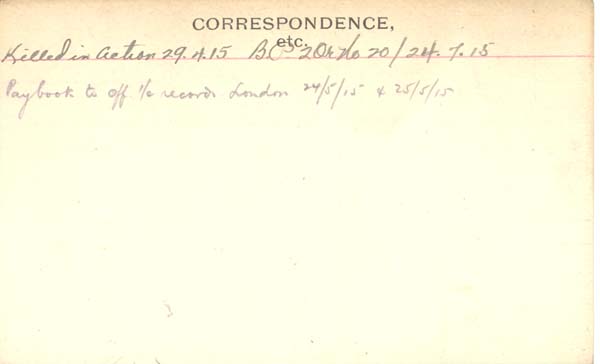 CORRESPONDENCE,
etc.
Killed in Action 29.4.15 20r No 20/24.7.15
Paybook to Off i/c records London 24/5/15 & 25/5/15